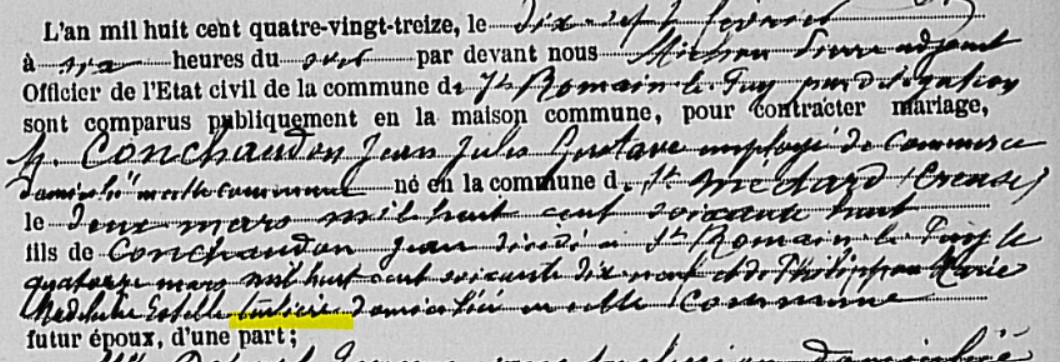 L'an mil huit cent quatre-vingt-treize, le dix-sept février
à heures du soir par devant nous Michon Pierre adjoint
Officier de l'Etat civil de la commune de St Romain-le-Puy par délégation
sont comparus publiquement en la maison commune, pour contracter mariage,
M. Conchaudon Jean Jules Gustave employé de commerce
domicilié en cette commune né en la commune de St Médard (Creuse)
le deux mars mil huit cent soixante huit
fils de Conchaudon Jean décédé à St Romain-le-Puy le
quatorze mars mil huit cent soixante dix-neuf et de Philippon Marie
Estelle domiciliée en cette commune
futur époux, d'une part;